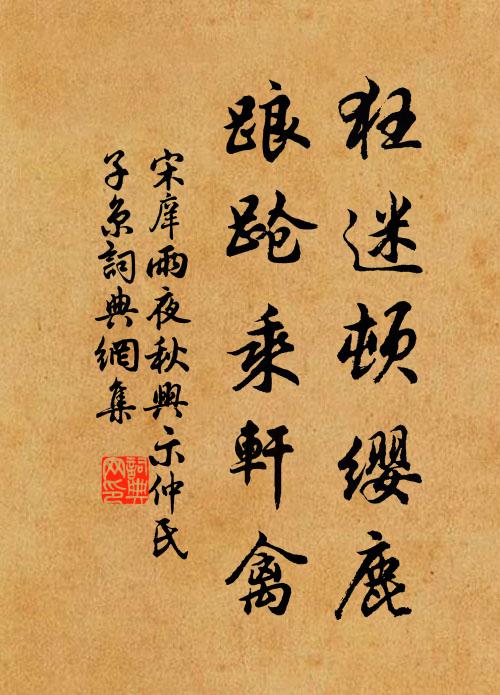 狂迷頓纓鹿
踉蹌乘軒禽
宋庠雨夜秋興示仲氏
子京詞典網集
詞典网印